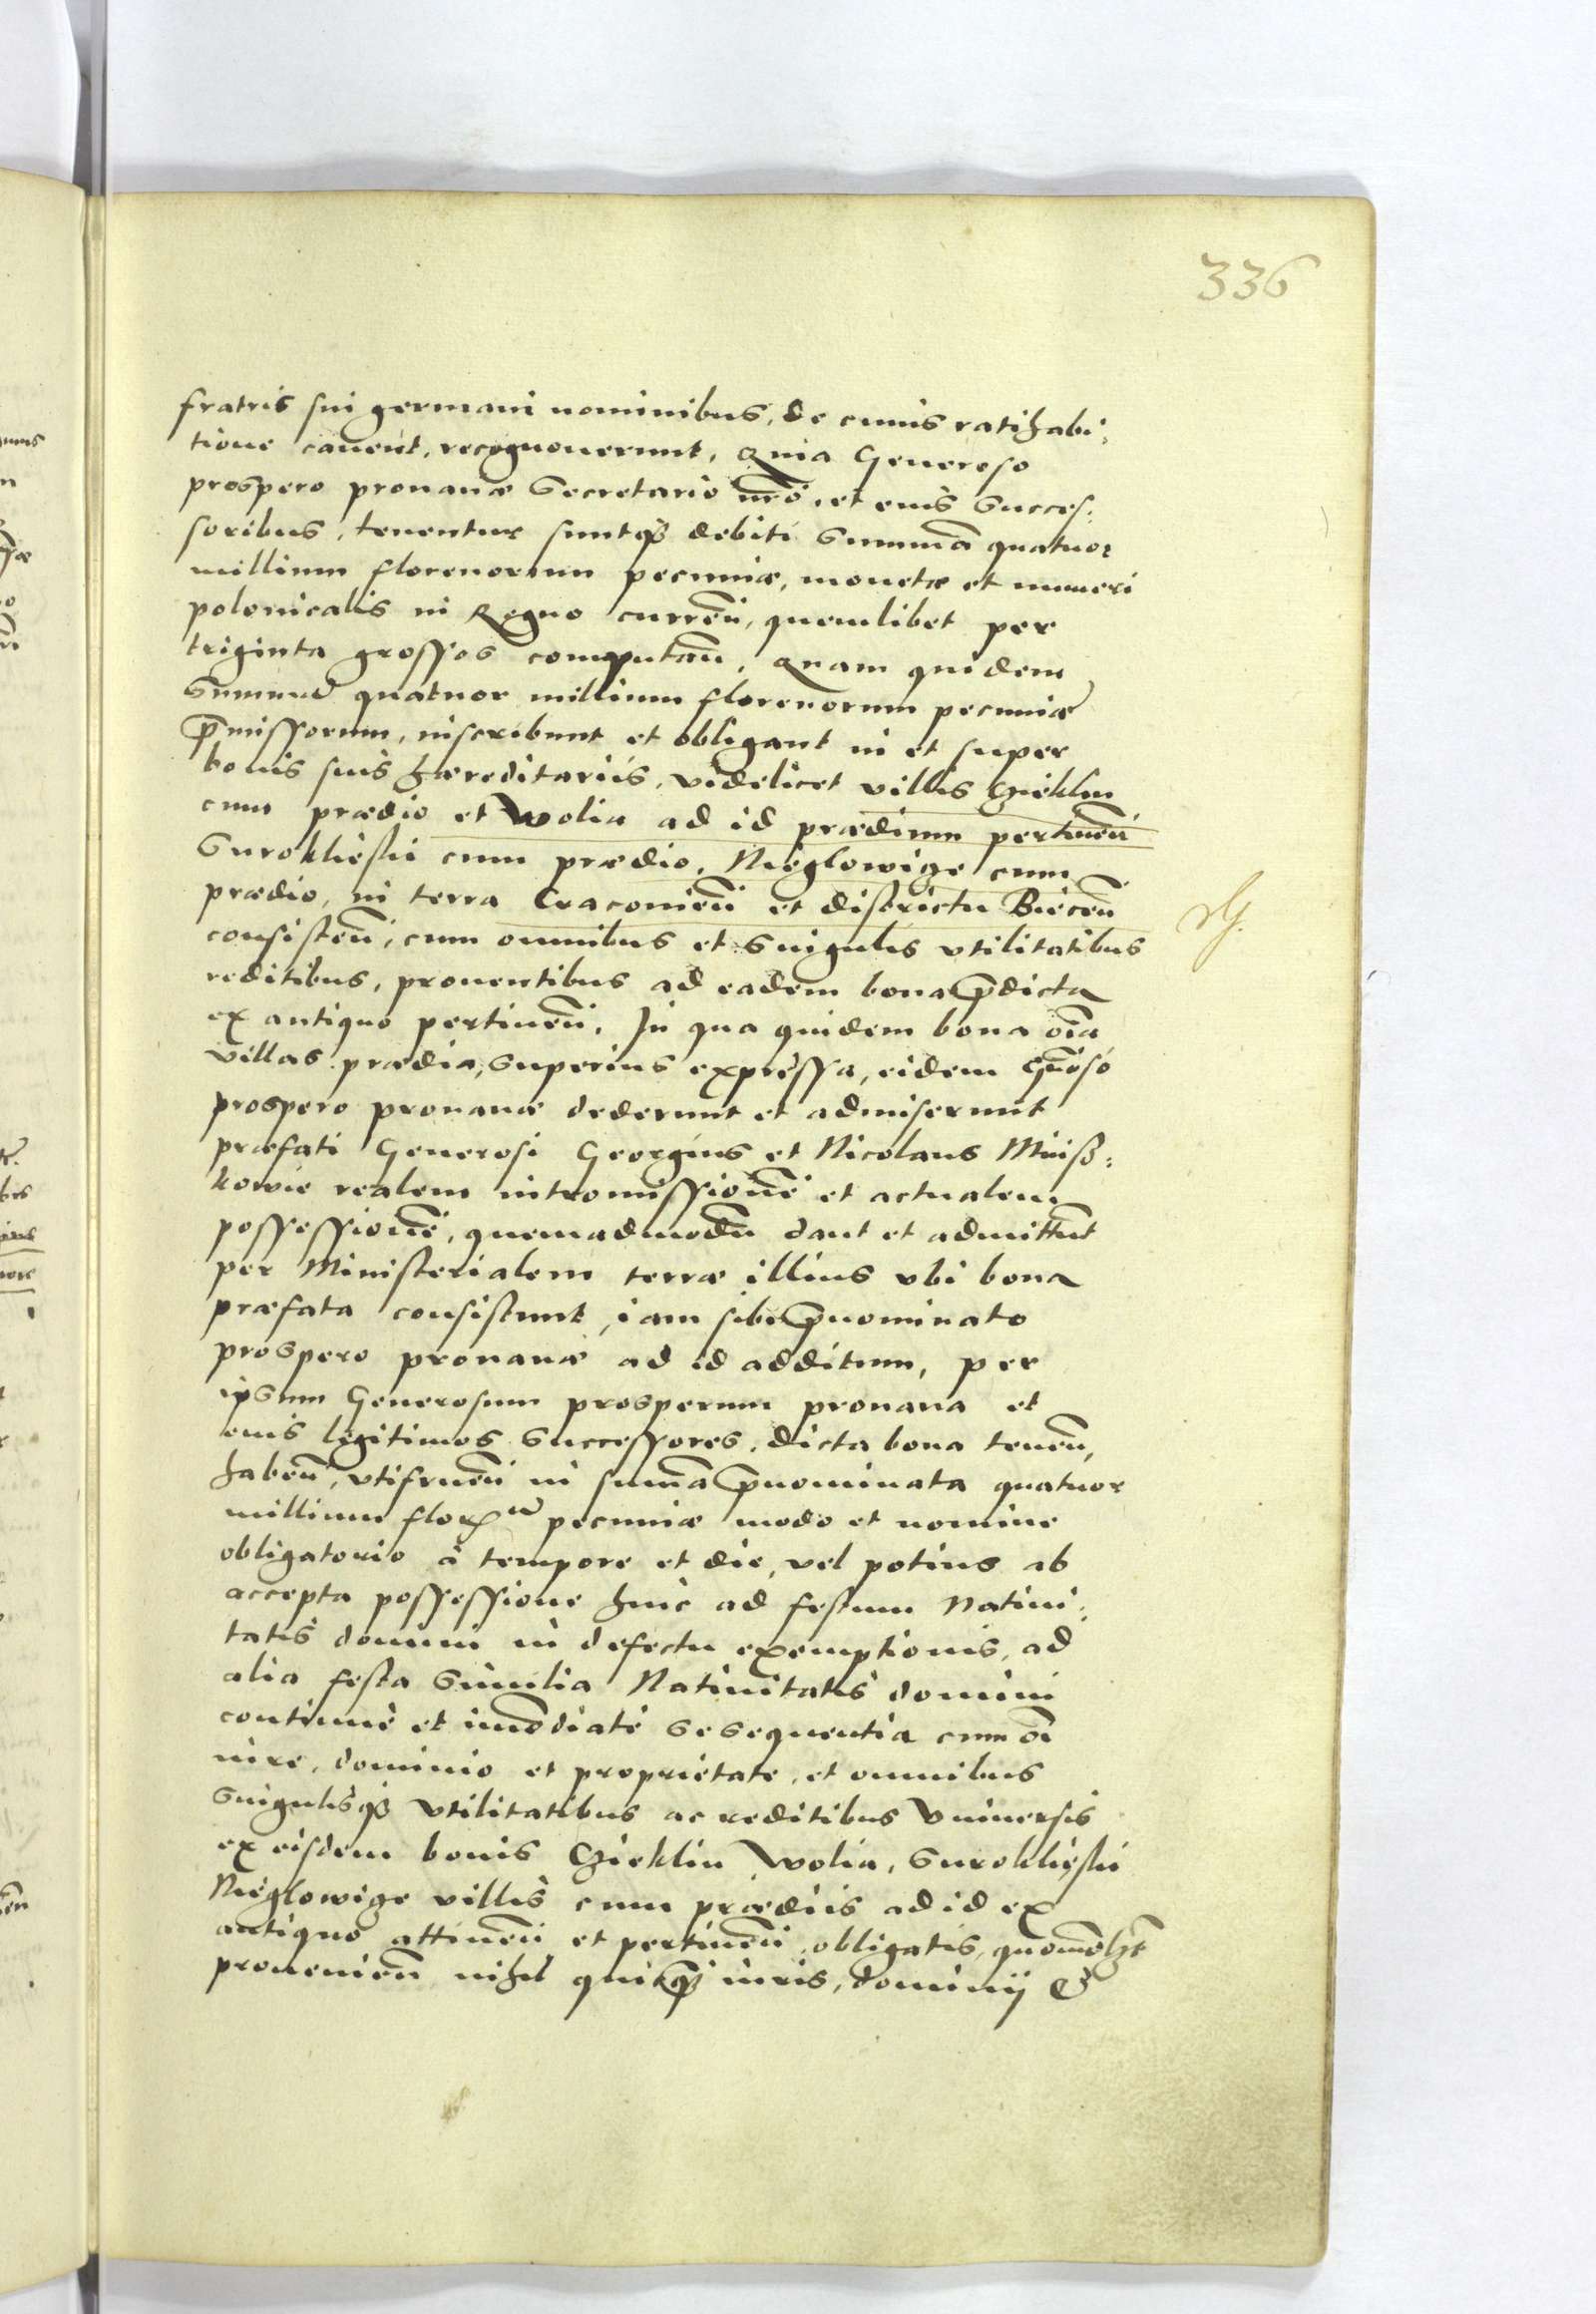 336
fratris sui germani nominibus, de cuius ratihabi:
tione cavent, recognoverunt, Quia Generoso
prospero provanæ Secretario nr̃o, et eius Succes:
soribus, tenentur suntq3 debiti Summã quatuor
millium florenorum pecuniæ, monetæ et numeri
polonicalis in Regno curreñ, quemlibet per
triginta grossos computañ, Quam quidem
Summã quatuor millium florenorum pecuniæ
p̃missorum, inscribunt et obligant in et super
bonis suis hæreditariis, videlicet villis Czieklin
cum prædio et Wolia ad id prædium pertineñ
Surokliesni cum prædio, Nieglowige cum
prædio, in terra Cracovieñ et districtu Bieceñ
consisteñ, cum omnibus et singulis vtilitatibus
reditibus, proventibus ad eadem bona p̃dicta
ex antiquo pertineñ. In qua quidem bona oĩa
villas prædia, superius expressa, eidem Gñoso
prospero provanæ dederunt et admiserunt
præfati Generosi Georgius et Nicolaus Misz:
kowie realem intromissionẽ et actualem
possessionẽ, quemadmodũ dant et admittũt
per Ministerialem terræ illius vbi bona
præfata consistunt, iam sibi p̃nominato
prospero provanæ ad id additum, per
ipsum Generosum prosperum provana et
eius legitimos Successores, dicta bona teneñ,
habeñ, vtifrueñ in sum̃a p̃nominata quatuor
millium flor. pecuniæ modo et nomine
obligatorio à tempore et die, vel potius ab
accepta possessione huic ad festum Nativi:
tatis domini in defectu exemptionis, ad
alia festa Similia Nativitatis domini
continuè et imẽdiatè sesequentia cum oĩ
iure, dominio et proprietate, et omnibus
Singulisq3 vtilitatibus ac reditibus Vniversis
ex eisdem bonis Czieklin Wolia, Surokliesni
Nieglowige villis cum prædiis ad id ex
antiquo attineñ et pertineñ, obligatis, quomõlz̃t
provenieñ nihil quicq̃ iuris, dominij &